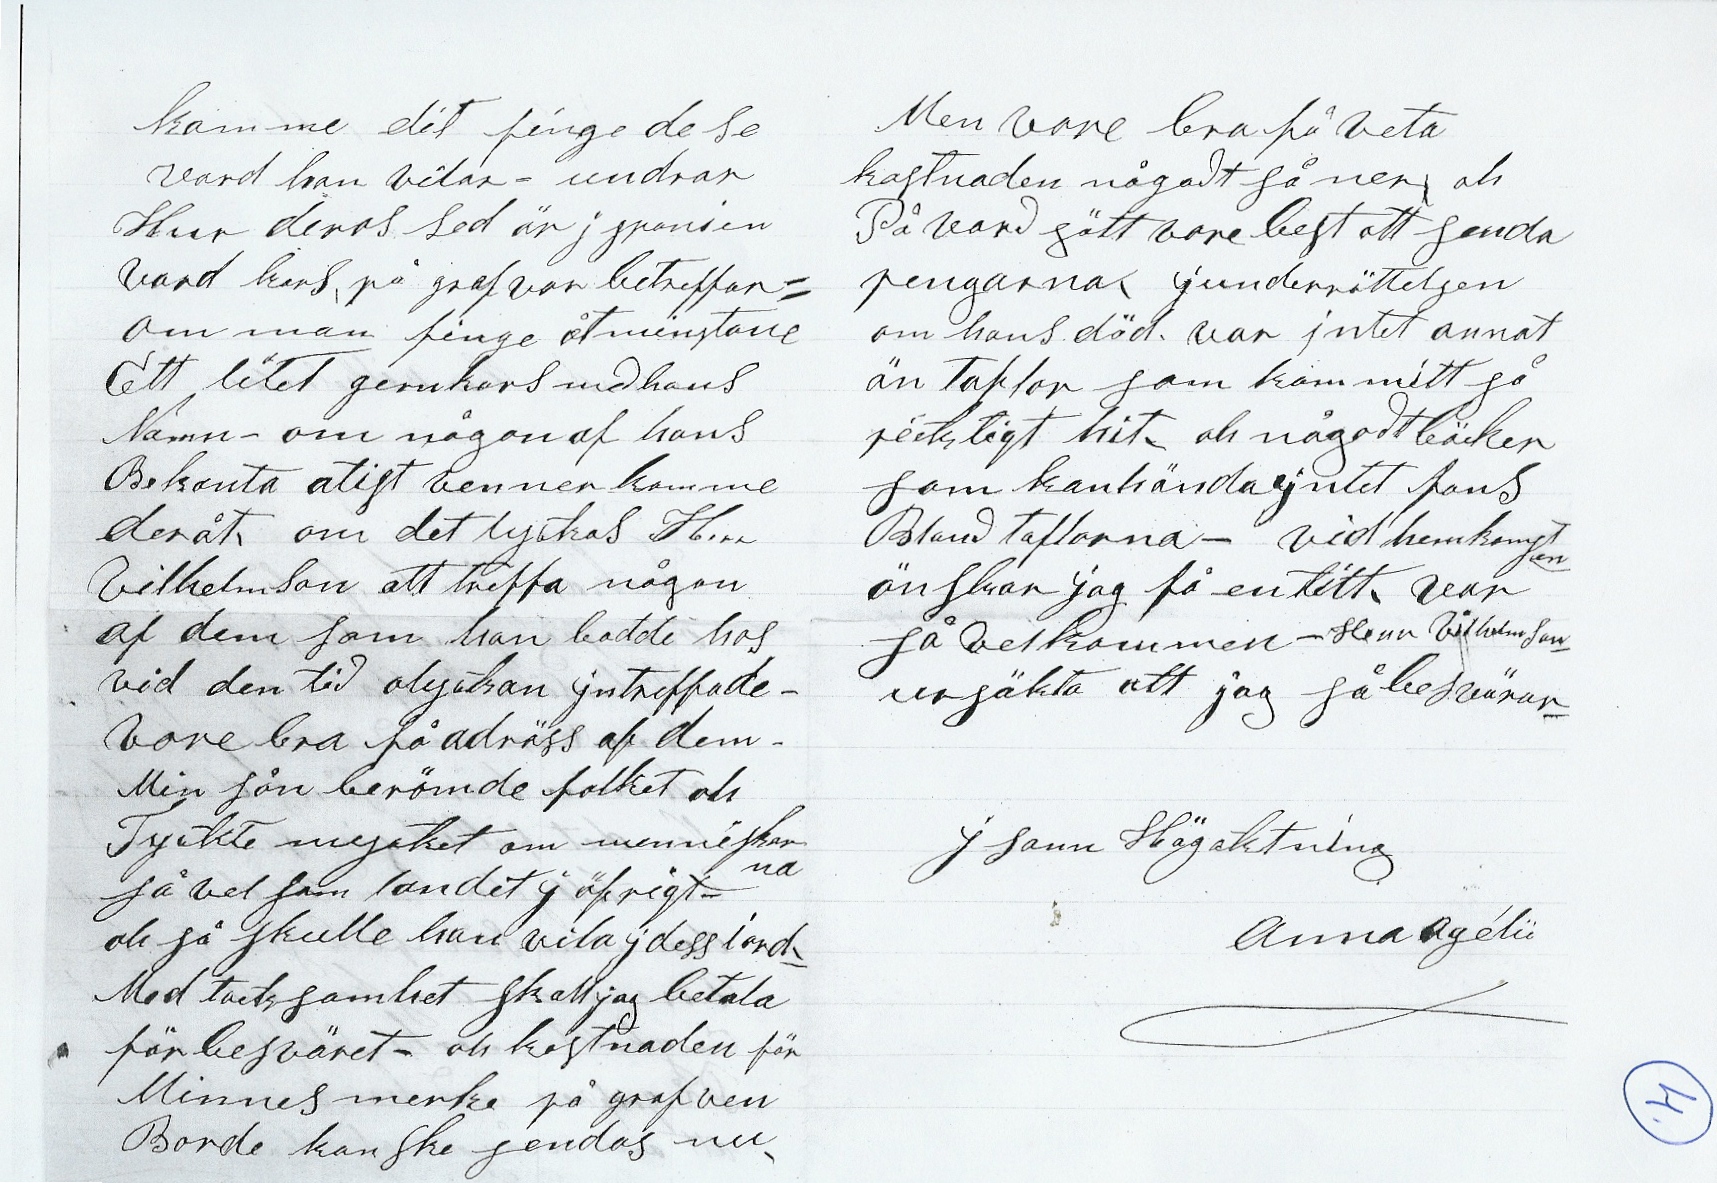 komme dit finge de se
vard han vilar = undrar
Hur deras sed är j spanien
vard kors, på grafvar betreffar =
om man finge åtminstone
Ett litet jernkors med hans
Namn - om någon af hans
Bekanta atist venner komme
deråt, om det lyckas Herr
Vilhelmson att träffa någon
af dem som han bodde hos
vid den tid olyckan jntreffade -
Vore bra få adräss af dem -
Min sån berömde folket oh
Tyckte mycket om menniskor
na
så vel som landet j öfrigt -
oh så skulle han vila j dess jord,
Med tacksamhet skall jag betala
för besväret - oh kostnaden för
Minnes merke på grafven
Borde kanske sendas nu,
Men vore bra få veta
kostnaden någodt så ner, oh
På vard sött vore best att senda
pengarna, j underrättelsen
om hans död. var jntet annat
än taflor som kommitt så
ricktigt hit, oh någodt böcker
som kanhända jntet fans
Bland taflorna - vid hemkomst
en
önskar jag få en titt, var
så velkommen - Herr Vilhelmson
ursäkta att jag så besvärar
j sann Högaktning
Anna Agélii
4